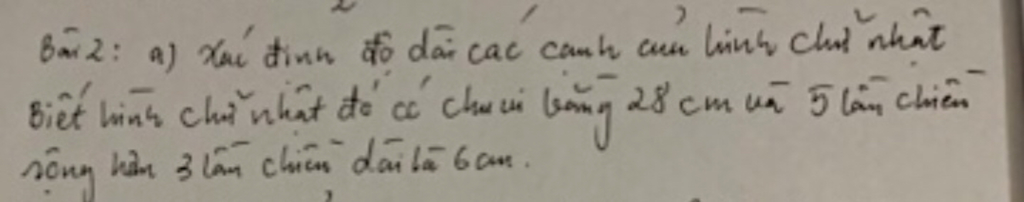 Bài 2: a) Xác định độ dài các cạnh của hình chữ nhật
Biết hình chữ nhật đó có chu vi bằng 28 cm và 5 lần chiều
rộng hơn 3 lần chiều dài là 6 cm.